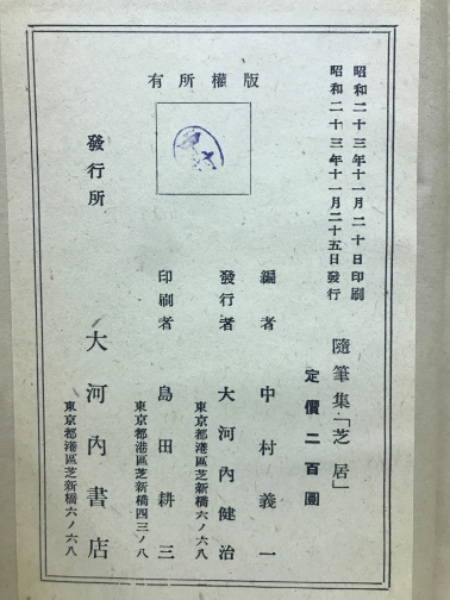 昭和二十三年十一月二十日印刷
昭和二十三年十一月二十五日發行
隨筆集「芝居」
定價二百圓
版權所有
編者 中村義一
發行者 大河內健治
東京都港區芝新橋六ノ六八
印刷者 島田耕三
東京都港區芝新橋四三ノ八
發行所 大河內書店
東京都港區芝新橋六ノ六八